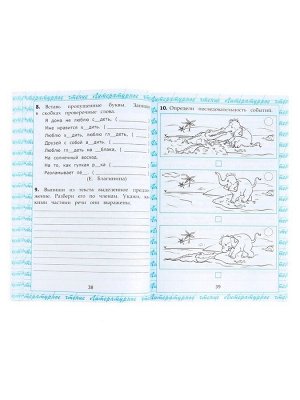 Литературное чтение Литературное чтение
8. Вставь пропущенные буквы. Запиши
в скобках проверочные слова.
Я дома не люблю с__деть, (
Мне нравится х__дить, (
Люблю х__дить, люблю гл__деть, (
Друзей с собой в__дить. (
Люблю гл__деть на __блака, (
На солнечный восход.
На то, как гулкая р__ка (
Разламывает лё__. (
(Е. Благинина)
9. Выпиши из текста выделенное предло-
жение. Разбери его по членам. Укажи, ка-
кими частями речи они выражены.
38
10. Определи последовательность событий.
39